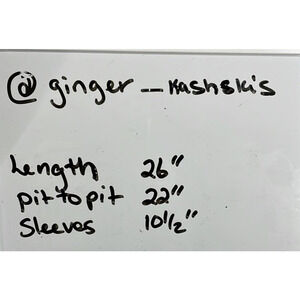 @ginger__kashskis
Length 26"
pit to pit 22"
Sleeves 10 1/2"